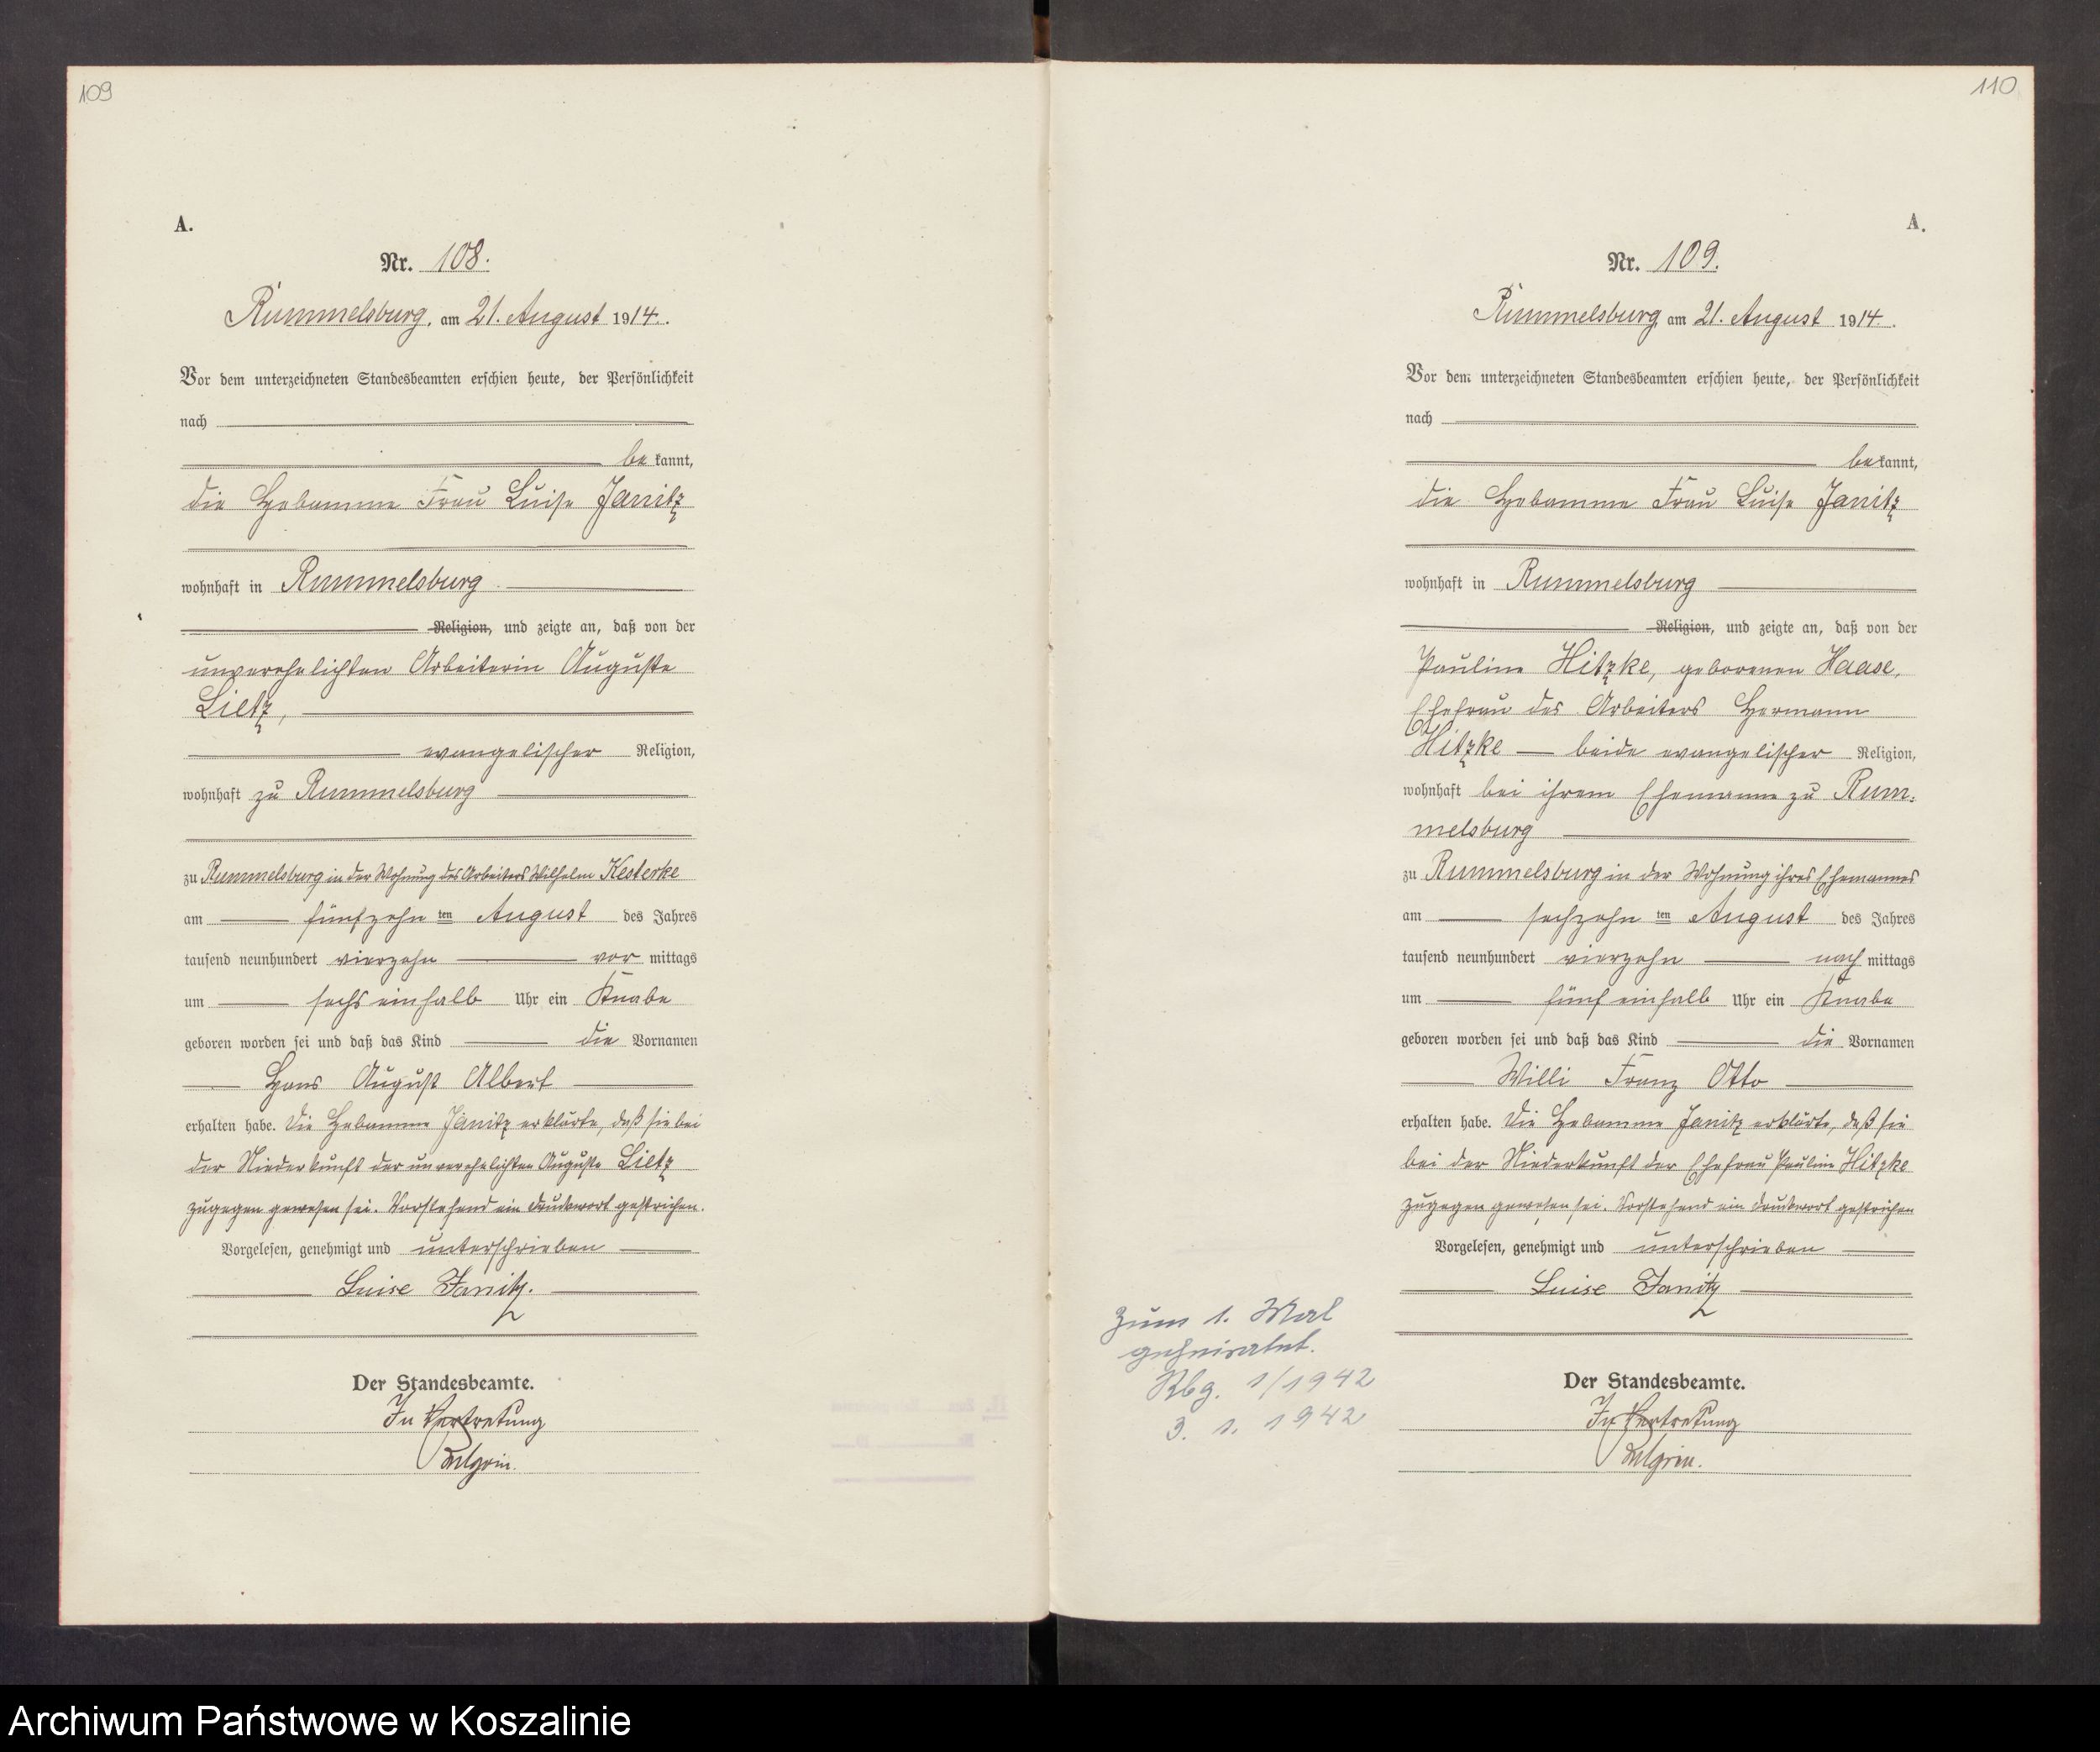 109
A.
Nr. 108.
Rummelsburg, am 21. August 1914.
Vor dem unterzeichneten Standesbeamten erschien heute, der Persönlichkeit
nach
be kannt,
die Hebamme Frau Luise Janitz
wohnhaft in Rummelsburg
Religion, und zeigte an, daß von der
unverehelichten Arbeiterin Auguste
Lietz,
evangelischer Religion,
wohnhaft zu Rummelsburg
zu Rummelsburg in der Wohnung des Arbeiters Wilhelm Kesterke
am fünfzehn ten August des Jahres
tausend neunhundert vierzehn vor mittags
um sechs einhalb Uhr ein Knabe
geboren worden sei und daß das Kind die Vornamen
Hans August Albert
erhalten habe. Die Hebamme Janitz erklärte, daß sie bei
der Niederkunft der unverehelichten Auguste Lietz
zugegen gewesen sei. Vorstehend ein Druckwort gestrichen.
Vorgelesen, genehmigt und unterschrieben
Luise Janitz.
Der Standesbeamte.
In Vertretung
110
A.
Nr. 109.
Rummelsburg, am 21. August 1914.
Vor dem unterzeichneten Standesbeamten erschien heute, der Persönlichkeit
nach
bekannt,
die Hebamme Frau Luise Janitz
wohnhaft in Rummelsburg
Religion, und zeigte an, daß von der
Pauline Hitzke, geborenen Haase,
Ehefrau des Arbeiters Hermann
Hitzke beide evangelischer Religion,
wohnhaft bei ihrem Ehemanne zu Rum=
melsburg
zu Rummelsburg in der Wohnung ihres Ehemannes
am sechzehn ten August des Jahres
tausend neunhundert vierzehn nach mittags
um fünf einhalb Uhr ein Knabe
geboren worden sei und daß das Kind die Vornamen
Willi Franz Otto
erhalten habe. Die Hebamme Janitz erklärte, daß sie
bei der Niederkunft der Ehefrau Pauline Hitzke
zugegen gewesen sei. Vorstehend ein Druckwort gestrichen
Vorgelesen, genehmigt und unterschrieben
Luise Janitz
Der Standesbeamte.
In Vertretung
Zum 1. Mal
geheiratet.
Rbg. 1/1942
3. 1. 1942
Archiwum Państwowe w Koszalinie